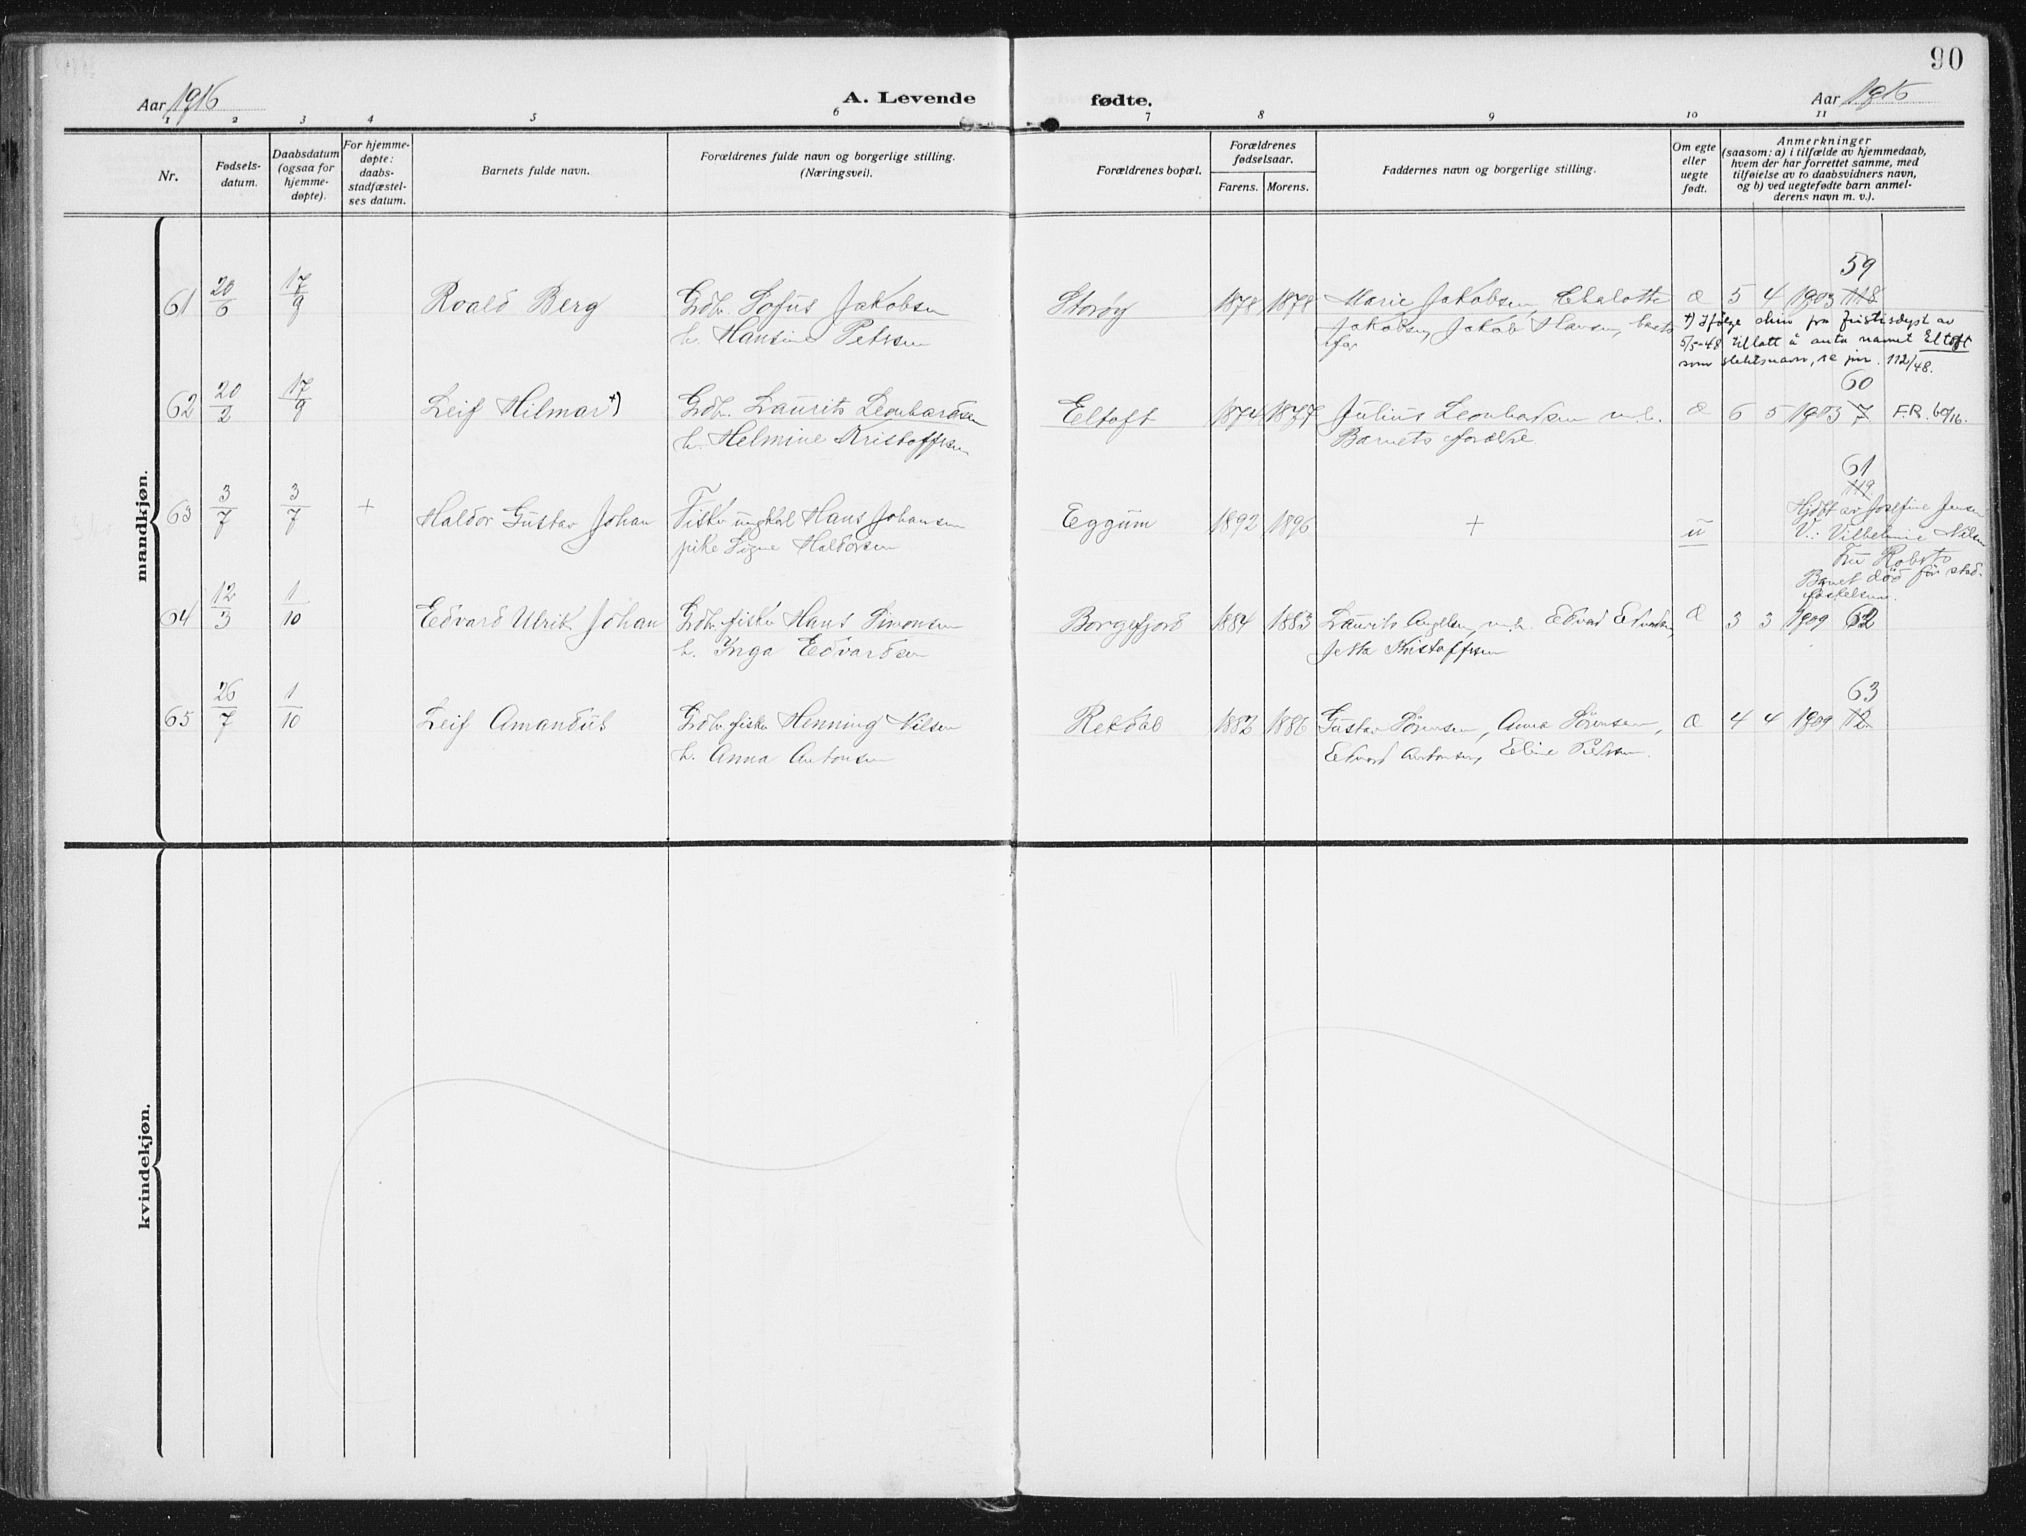 90
Aar 1916 A. Levende fødte. Aar 1916
1 2 3 4 5 6 7 8 9 10 11
Nr.
Fødsels-
datum.
Daabsdatum
(ogsaa for
hjemme-
døpte).
For hjemme-
døpte:
daabs-
stadfæstel-
ses datum.
Barnets fulde navn.
Forældrenes fulde navn og borgerlige stilling.
(Næringsvei).
Forældrenes bopæl.
Forældrenes
fødselsaar.
Farens. Morens.
Faddernes navn og borgerlige stilling.
Om egte
eller
uegte
født.
Anmerkninger
(saasom: a) i tilfælde av hjemmedaab,
hvem der har forrettet samme, med
tilføielse av to daabsvidners navn,
og b) ved uegtefødte barn anmel-
derens navn m. v.).
mandkjøn.
59
61 20/6 17/9 Roald Berg Gdbr. Sofus Jakobsen Storøy 1878 1878 Marie Jakobsen, Chalotte æ 5 4 1903 118
h. Hansine Petrsen Jakobsen, Jakob Hansen, barnets
far
+) Ifølge skriv fra Justisdept av
5/5-48 tillatt å anta navnet Eltoft
som slektsnavn, se jnr. 112/48.
60
62 20/2 17/9 Leif Hilmar +) Gdbr. Laurits Leonhardsen Eltoft 1874 1877 Julius Leonhardsen m.h. æ 6 5 1903 7 F.R. 60/16.
h. Helmine Kristoffersen Barnets forældre
61
119
63 3/7 3/7 + Haldor Gustav Johan Fisker ungkal Hans Johansen Eggum 1892 1896 + u Hjdøbt av Josefine Jensen
pike Signe Haldorsen V.: Vilhelmine Nilsen
Barnet død før stad-
fæstelsen.
64 12/3 1/10 Edvard Ulrik Johan Gdbr. fisker Hans Simonsen Borgefjord 1884 1883 Laurits Angelsen, m.h. Edvard Edvardsen, æ 3 3 1909 62
h. Inga Edvardsen Jetta Kristoffersen
63
65 26/7 1/10 Leif Amandus Gdbr. fisker Henning Nilsen Rekdal 1882 1886 Gustav Sørensen, Anna Sørensen, æ 4 4 1909 12
h. Anna Antonsen Edvard Antonsen, Eline Petersen.
kvindekjøn.